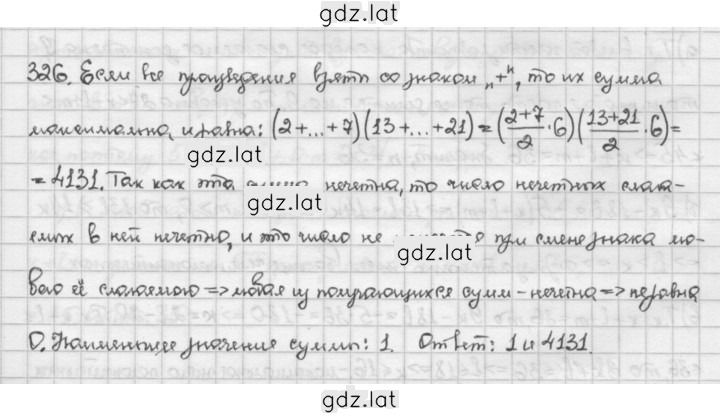 gdz.lat
326. Если все произведения взять со знаком „+“, то их сумма
максимальна и равна: (2+...+7)(13+...+21) = (2+7/2 · 6)(13+21/2 · 6) =
gdz.lat
= 4131. Так как эта сумма нечетна, то число нечетных слага-
gdz.lat
емых в ней нечетно, и это число не при смене знака лю-
gdz.lat
бого её слагаемого => любая из получающихся сумм - нечетна => не равна
0. Наименьшее значение суммы: 1. Ответ: 1 и 4131.
gdz.lat